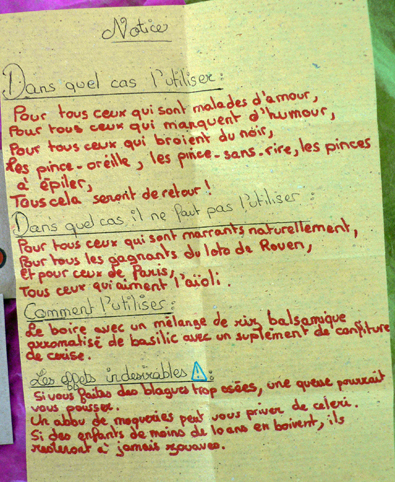 Notice
Dans quel cas l'utiliser :
Pour tous ceux qui sont malades d'amour,
Pour tous ceux qui manquent d'humour,
Pour tous ceux qui broient du noir,
Les pince-oreille, les pince-sans-rire, les pinces
à épiler,
Tous cela seront de retour !
Dans quel cas il ne faut pas l'utiliser :
Pour tous ceux qui sont marrants naturellement,
Pour tous les gagnants du loto de Rouen,
et pour ceux de Paris,
Tous ceux qui aiment l'aïoli.
Comment l'utiliser :
Le boire avec un mélange de riz, balsamique
arromatisé de basilic avec un suplément de confiture
de cerise.
Les effets indesirables :
Si vous faites des blagues trop osées, une queue pourrait
vous pousser.
Un abbu de moqueries peut vous priver de celeri.
Si des enfants de moins de 10 ans en boivent, ils
resteront à jamais zouaves.